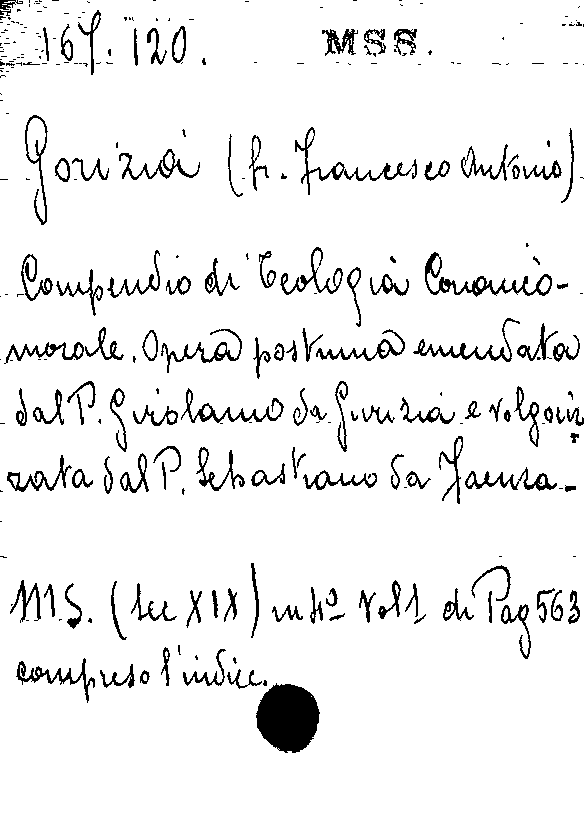 167. 120. MSS.
Gorizia (fr. Francesco Antonio)
Compendio di Teologia Canonico-
morale. Opera postuma emendata
dal P. Girolamo da Gorizia e volgariz
zata dal P. Sebastiano da Faenza.
MS. (sec XIX) in 4º Vol 1 di Pag 563
compreso l'indice.